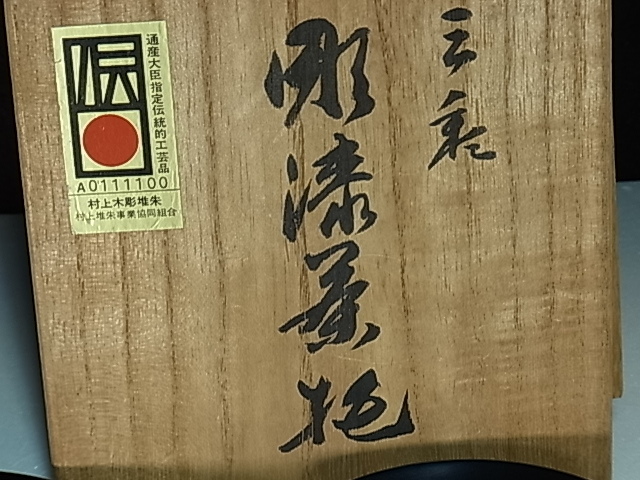 三彩
彫漆茶托
伝
通産大臣指定伝統的工芸品
A0111100
村上木彫堆朱
村上堆朱事業協同組合